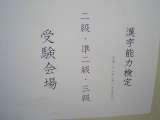 漢字能力検定
二級・準二級・三級
受験会場